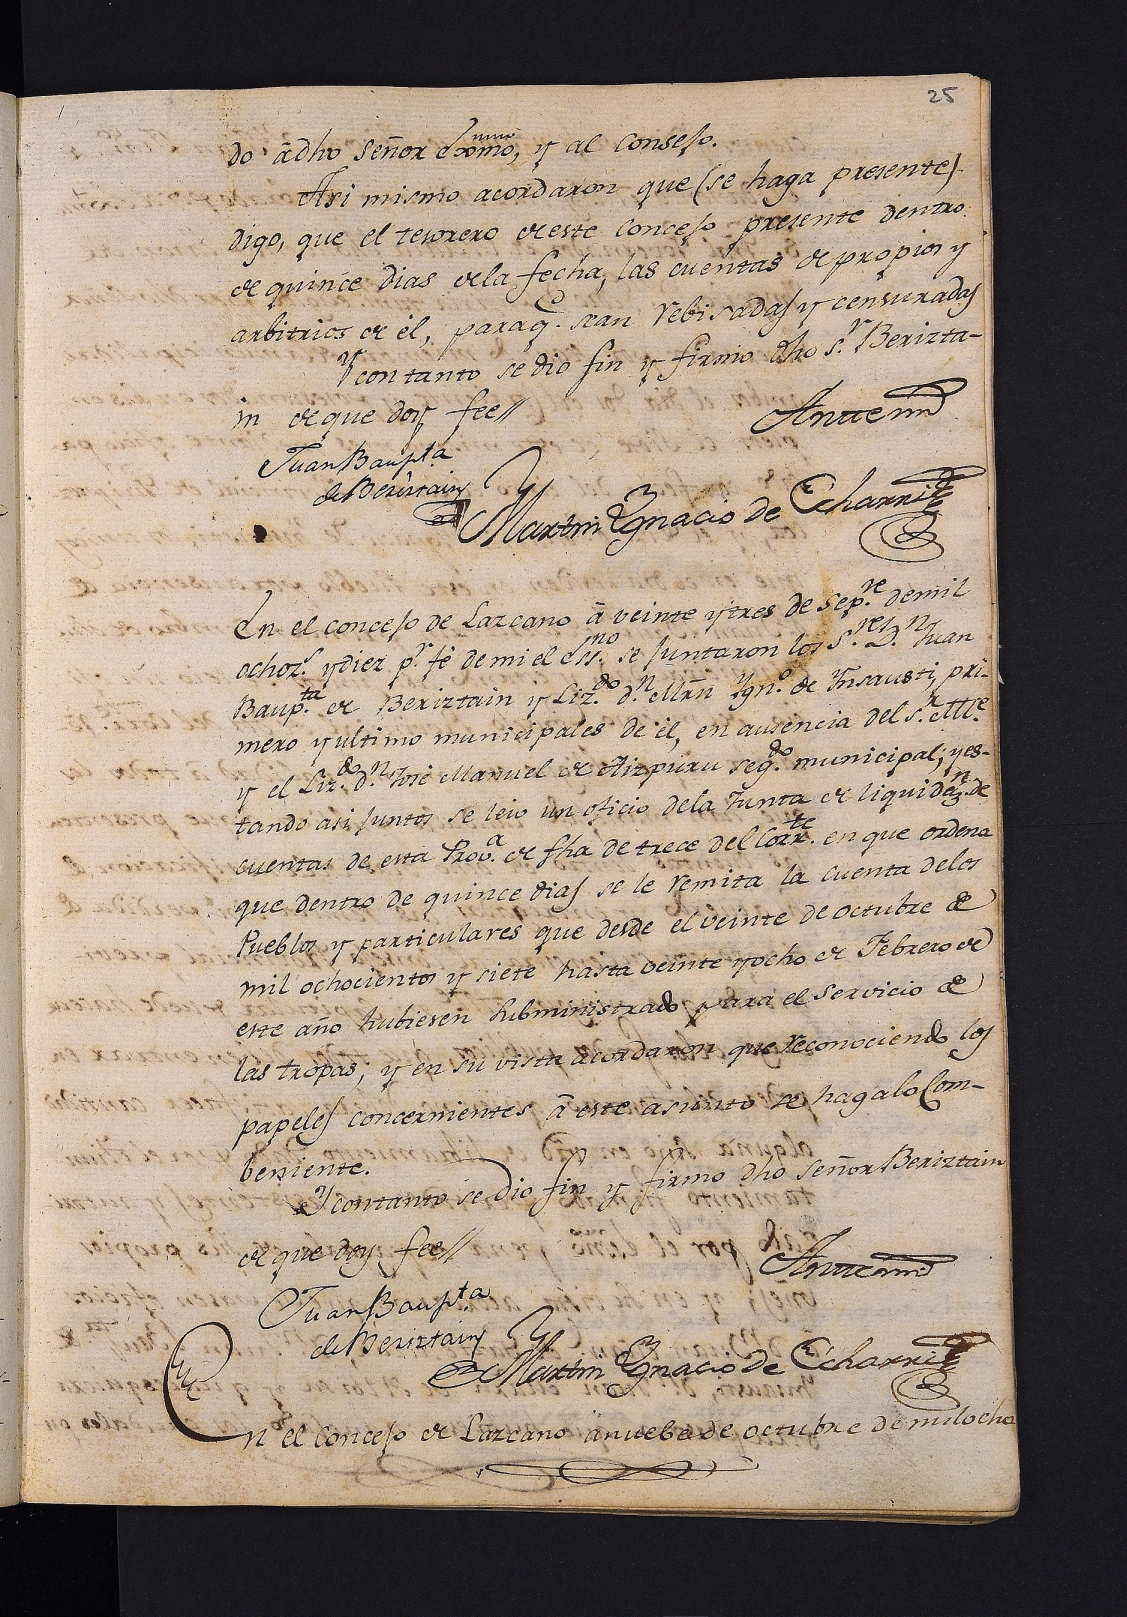 25
do â dho señor exmo, y al consejo.
Asi mismo acordaron que (se haga presente)
digo, que el tesorero de este concejo presente dentro
de quince dias de la fecha, las cuentas de propios y
arbitrios de él, paraq. sean rebisadas y censuradas
Y con tanto se dio fin y firmo dho s.r Berizta-
in de que doy fee//
Ante mi
Juan Baup.ta
de Beriztain
Martin Ygnacio de Echarri
En el concejo de Lazcano â veinte y tres de Sep.re de mil
ochoz.s y diez p.r fê de mi el ess.no se juntaron los S.res D.n Juan
Baup.ta de Beriztain y Liz.do d.n Mrn Ygn.o de Ynsausti, pri-
mero y ultimo municipales de él, en ausencia del s.r M.e
y el Liz.do d.n José Manuel de Aizpuru seg.do municipal; y es-
tando asi juntos se leio un oficio de la Junta de liquidaz.n de
cuentas de esta Prov.a de fha de trece del Corr.te en que ordena
que dentro de quince dias se le remita la cuenta de los
Pueblos y particulares que desde el veinte de octubre de
mil ochocientos y siete hasta veinte y ocho de Febrero de
este año hubiesen subministrado para el servicio de
las tropas; y en su vista acordaron que reconociendo los
papeles concernientes â este asunto se haga lo Com-
beniente.
Y con tanto se dio fin y firmo dho señor Beriztain
de que doy fee//
Ante mi
Juan Baup.ta
de Beriztain
Martin Ygnacio de Echarri
En el concejo de Lazcano â nuebe de octubre de mil ocho